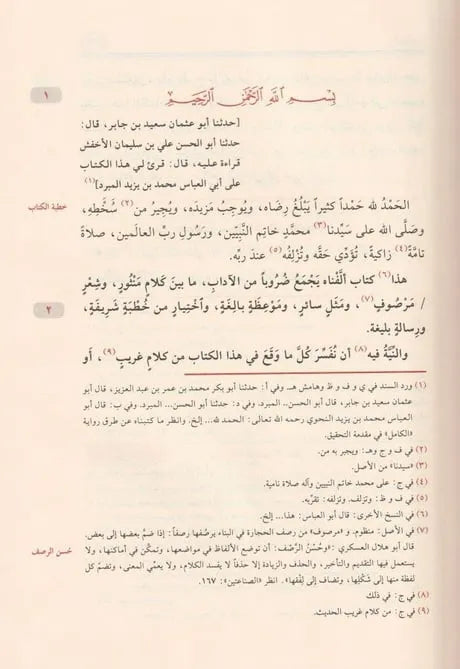 ١
بِسْمِ ٱللَّهِ ٱلرَّحْمَٰنِ ٱلرَّحِيمِ
[حدثنا أبو عثمان سعيد بن جابر، قال:
حدثنا أبو الحسن علي بن سليمان الأخفش
قراءة عليه، قال: قرئ لي هذا الكتاب
على أبي العباس محمد بن يزيد المبرد](١)
خطبة الكتاب
الحَمْدُ لله حَمْداً كثيراً يَبْلُغُ رِضَاه، ويُوجِبُ مَزِيدَه، ويُجِيرُ من(٢) سَخَطِهِ،
وصَلَّى الله على سَيِّدنا(٣) محمَّدٍ خاتِمِ النَّبِيِّين، ورَسُولِ ربِّ العالَمين، صلاةً
تامَّةً(٤) زاكِيةً، تُؤَدِّي حَقَّه وتُزْلِفُه(٥) عندَ ربِّه.
هذا(٦) كتاب أَلَّفْناه يَجْمَعُ ضُرُوباً من الآدابِ، ما بينَ كَلامٍ مَنْثُورٍ، وشِعْرٍ
٢
/ مَرْصُوفٍ(٧)، ومَثَلٍ سائرٍ، ومَوْعِظَةٍ بالِغَةٍ، وٱخْتِيارٍ من خُطْبَةٍ شَرِيفَةٍ،
ورِسالةٍ بليغة.
والنِّيَّةُ فيه(٨) أن نُفَسِّرَ كُلَّ ما وَقَعَ في هذا الكتاب من كلامٍ غريبٍ(٩)، أو
(١) ورد السند في ي و ف و ظ وهامش هـ. وفي أ: حدثنا أبو بكر محمد بن عمر بن عبد العزيز، قال أبو
عثمان سعيد بن جابر، قال أبو الحسن.. المبرد. وفي د: حدثنا أبو الحسن... المبرد. وفي ب: قال أبو
العباس محمد بن يزيد النحوي رحمه الله تعالى: الحمد لله... إلخ. وانظر ما كتبناه عن طرق رواية
«الكامل» في مقدمة التحقيق.
(٢) في ف و ج وهـ: ويجير به من.
(٣) «سيدنا» من الأصل.
(٤) في ج: على محمد خاتم النبيين وآله صلاة نامية.
(٥) في ف و ظ: وتزلف. وتزلفه: تقرّبه.
(٦) في النسخ الأخرى: قال أبو العباس: هذا... إلخ.
(٧) في الأصل: منظوم. و «مرصوف» من رصف الحجارة في البناء يرصُفها رصفاً: إذا ضمّ بعضها إلى بعض.
حُسن الرصف
قال أبو هلال العسكري: «وحُسْنُ الرَّصْف: أن توضع الألفاظ في مواضعها، وتمكّن في أماكنها، ولا
يستعمل فيها التقديم والتأخير، والحذف والزيادة إلا حذفاً لا يفسد الكلام، ولا يعمّي المعنى، وتضمّ كل
لفظة منها إلى شَكْلِها، وتضاف إلى لِفْقها». انظر «الصناعتين»: ١٦٧.
(٨) في ج: في ذلك
(٩) في ج: من كلام غريب الحديث.